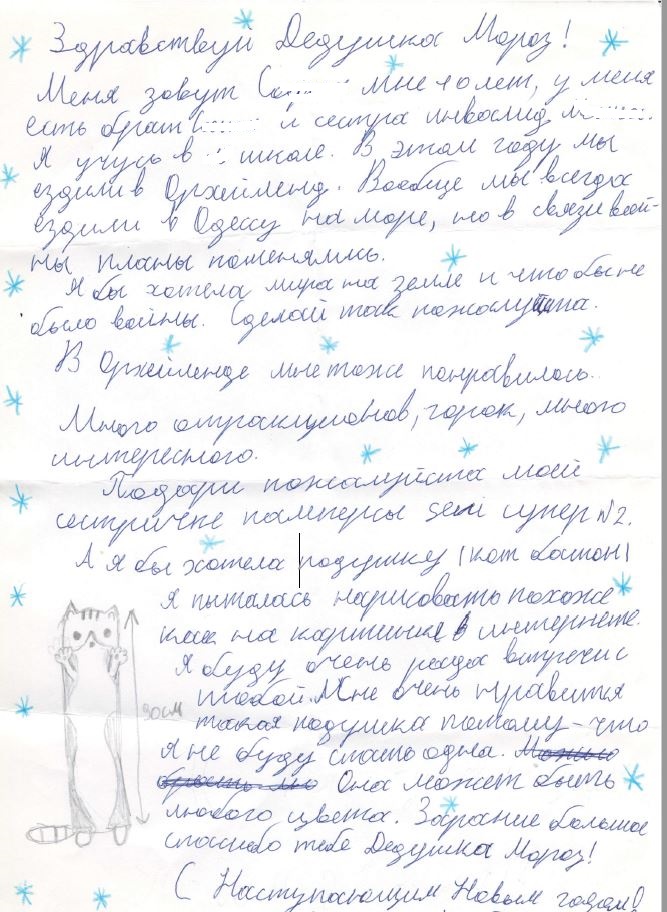 Здравствуй Дедушка Мороз!
Меня зовут С мне 10 лет, у меня
есть брат и сестра инвалид
Я учусь в школе. В этом году мы
ездили в Орхейленд. Вообще мы всегда
ездили в Одессу на море, но в связи вой-
ны планы поменялись.
Я бы хотела мира на земле и что бы не
было войны. Сделай так пожалуйста.
В Орхейленде мне тоже понравилось.
Много атракционов, горок, много
интересного.
Подари пожалуйста моей
сестричке памперсы seni супер N2.
А я бы хотела подушку (кот батон)
я пыталась нарисовать похоже
как на картинке в интернете.
Я буду очень рада встречи с
тобой. Мне очень нравится
такая подушка потому-что
я не буду спать одна.
Она может быть
любого цвета. Зарание большое
спасибо тебе Дедушка Мороз!
С Наступающим Новым годом!